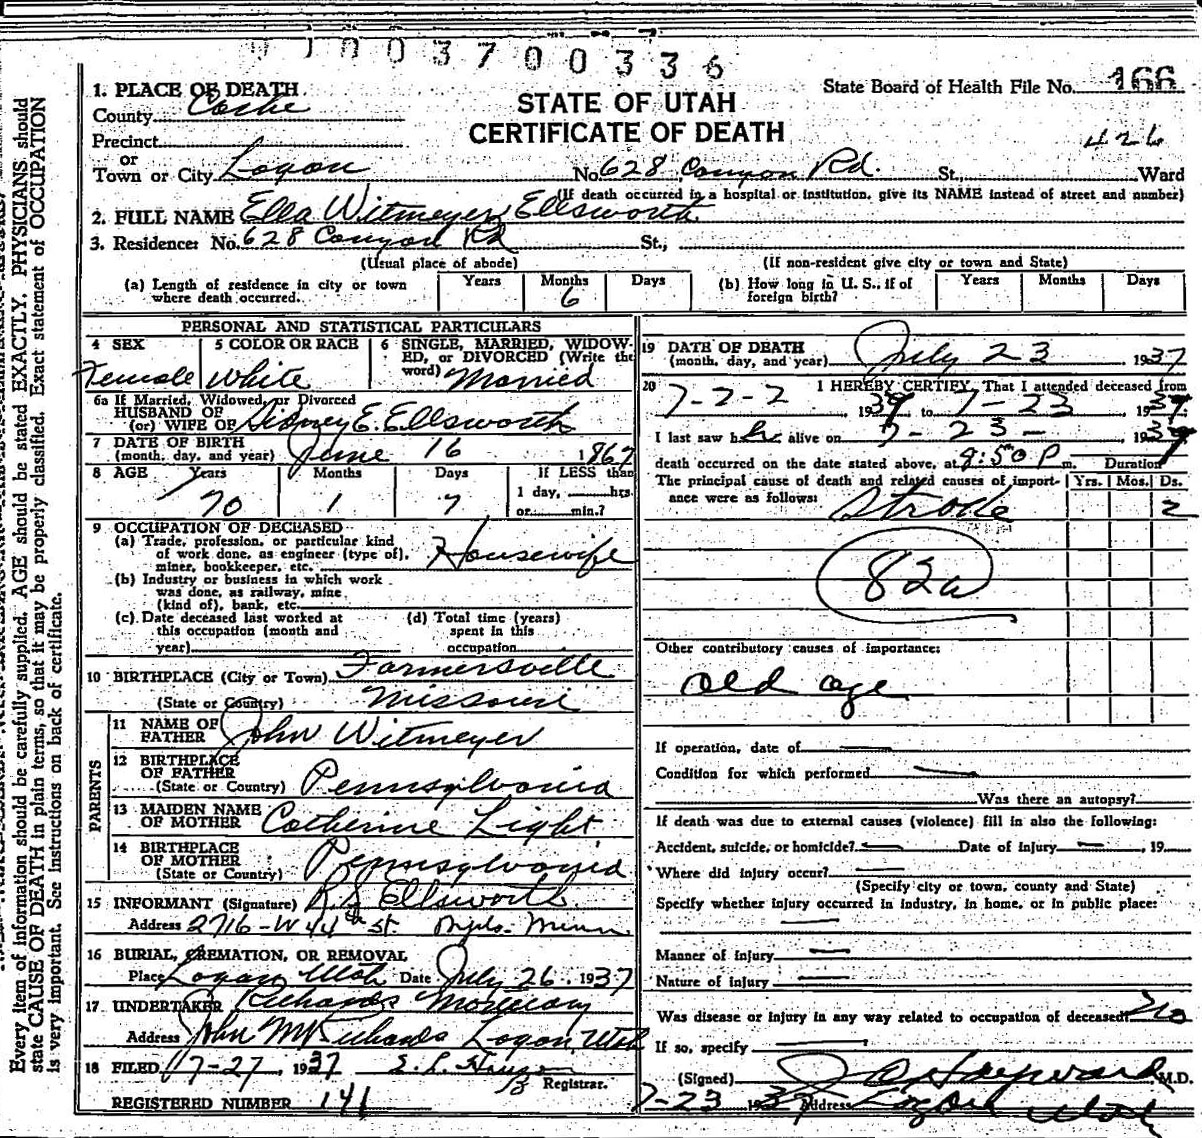 0 1 0 0 3 7 0 0 3 3 6
1. PLACE OF DEATH
County Cache
Precinct
or
Town or City Logan No. 628 Canyon Rd. St., Ward
State Board of Health File No. 166
STATE OF UTAH
CERTIFICATE OF DEATH
426
(If death occurred in a hospital or institution, give its NAME instead of street and number)
2. FULL NAME Ella Witmeyer Ellsworth
3. Residence: No. 628 Canyon Rd St.,
(Usual place of abode) (If non-resident give city or town and State)
(a) Length of residence in city or town where death occurred. Years Months 6 Days
(b) How long in U. S., if of foreign birth? Years Months Days
PERSONAL AND STATISTICAL PARTICULARS
4 SEX Female
5 COLOR OR RACE White
6 SINGLE, MARRIED, WIDOWED, or DIVORCED (Write the word) Married
6a If Married, Widowed, or Divorced
HUSBAND OF
(or) WIFE OF Sidney E. Ellsworth
7 DATE OF BIRTH
(month, day, and year) June 16 1867
8 AGE Years 70 Months 1 Days 7 If LESS than 1 day, hrs. or min.?
9 OCCUPATION OF DECEASED
(a) Trade, profession, or particular kind of work done, as engineer (type of), miner, bookkeeper, etc. Housewife
(b) Industry or business in which work was done, as railway, mine (kind of), bank, etc.
(c) Date deceased last worked at this occupation (month and year)
(d) Total time (years) spent in this occupation
10 BIRTHPLACE (City or Town) Farmersville
(State or Country) Missouri
PARENTS
11 NAME OF FATHER John Witmeyer
12 BIRTHPLACE OF FATHER (State or Country) Pennsylvania
13 MAIDEN NAME OF MOTHER Catherine Light
14 BIRTHPLACE OF MOTHER (State or Country) Pennsylvania
15 INFORMANT (Signature) R. S. Ellsworth
Address 2716-W 44th St. Mpls. Minn
16 BURIAL, CREMATION, OR REMOVAL
Place Logan Utah Date July 26, 1937
17 UNDERTAKER Richards Mortuary
Address John M Richards Logan, Utah
18 FILED 7-27, 1937 Registrar.
REGISTERED NUMBER 141
19 DATE OF DEATH
(month, day, and year) July 23 1937
20 I HEREBY CERTIFY, That I attended deceased from
7-22, 1937 to 7-23 1937
I last saw her alive on 7-23- 1937
death occurred on the date stated above, at 9:50 P m. Duration
The principal cause of death and related causes of importance were as follows: Yrs. Mos. Ds.
Stroke 2
82a
Other contributory causes of importance:
old age
If operation, date of
Condition for which performed
Was there an autopsy?
If death was due to external causes (violence) fill in also the following:
Accident, suicide, or homicide? Date of injury , 19
Where did injury occur?
(Specify city or town, county and State)
Specify whether injury occurred in industry, in home, or in public place:
Manner of injury
Nature of injury
Was disease or injury in any way related to occupation of deceased? No
If so, specify
(Signed) Hayward M.D.
7-23 1937 Address Logan Utah
Every item of information should be carefully supplied. AGE should be stated EXACTLY. PHYSICIANS should
state CAUSE OF DEATH in plain terms, so that it may be properly classified. Exact statement of OCCUPATION
is very important. See instructions on back of certificate.